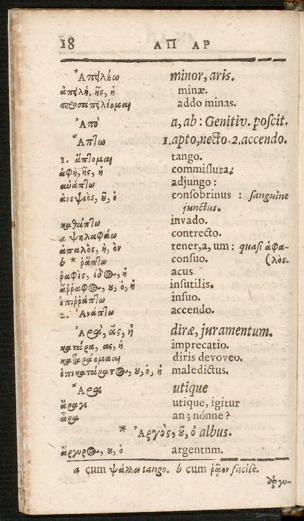 18 ΑΠ ΑΡ
Ἀπειλέω minor, aris.
ἀπειλὴ, ῆς, ἡ minæ.
προσαπειλέομαι addo minas.
Ἀπὸ a, ab : Genitiv. poscit.
Ἅπτω 1. apto, necto 2. accendo.
1. ἅπτομαι tango.
ἁφὴ, ῆς, ἡ commissura;
συνάπτω adjungo :
ἀνεψιὸς, οῦ, ὁ consobrinus : sanguine
junctus.
καθάπτω invado.
a ψηλαφάω contrecto.
ἁπαλὸς, ἡ, ὸν tener, a, um : quasi ἁφα-
b * ῥάπτω consuo. (λός.
ῥαφὶς, ίδος, ἡ acus
ἄῤῥαφος, ου, ὁ, ἡ insutilis.
ἐπιῤῥάπτω insuo.
2. Ἀνάπτω accendo.
Ἀρὰ, ᾶς, ἡ diræ, juramentum.
κατάρα, ας, ἡ imprecatio.
καταράομαι diris devoveo.
ἐπικατάρατος, ου, ὁ, ἡ maledictus.
Ἄρα utique
ἄραγε utique, igitur
ἆρα an ; nónne ?
* Ἀργὸς, οῦ, ὁ albus.
ἄργυρος, ου, ὁ argentum.
a cum ψάλλω tango. b cum ῥᾷον facilè.
ἀργυ-